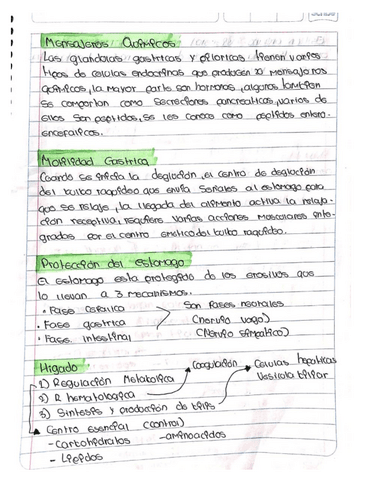 Mensajeros Químicos
Las glandulas gastricas y piloricas tienen varios
tipos de celulas endocrinas que producen 20 mensajeros
químicos, la mayor parte son hormonas, algunos tambien
se comportan como secreciones pancreaticas, varios de
ellos son peptidos, se les conoce como peptidos entero
encefalicos.
Motilidad Gastrica
Cuando se inicia la deglución, el centro de deglución
del bulbo raquideo que envia señales al estomago para
que se relaje, la llegada del alimento activa la relaja-
ción receptiva, requiere varias acciones musculares inte-
grados por el centro emetico del bulbo raquideo.
Protección del estomago
El estomago esta protegido de los erosivos que
lo llevan a 3 mecanismos.
• Fase cefalica
• Fase gastrica
• Fase intestinal
Son fases neurales
(nervio vago)
(Nervio simpatico)
Higado
Coagulación
Celulas hepaticas
Vesicula biliar
1) Regulación Metabolica
2) R hematologica
3) Sintesis y producción de bilis
Centro esencial (control)
-Carbohidratos -aminoacidos
-Lipidos